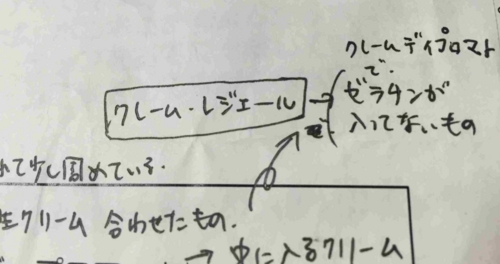 クレームディプロマト
で.
ゼラチンが
入ってないもの
クレーム・レジェール→
れて少し固めている.
生クリーム 合わせたもの.
→ 中に入るクリーム